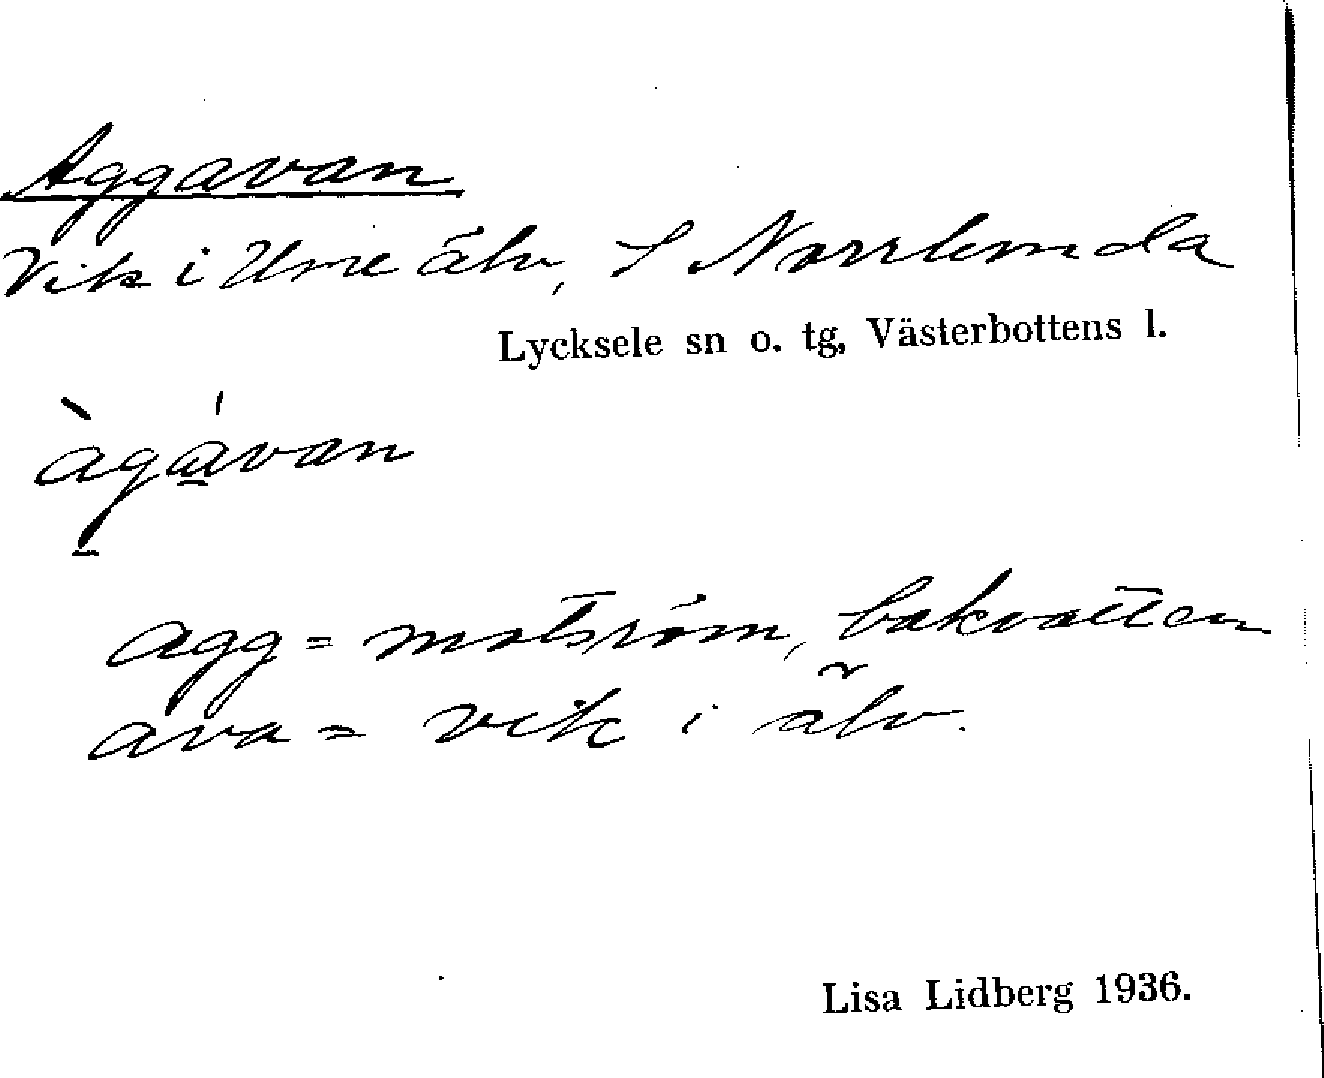 Aggavan
Vik i Ume älv, S Norrlunda
Lycksele sn o. tg, Västerbottens l.
àgávan
agg = motström, bakvatten
ava = vik i älv.
Lisa Lidberg 1936.